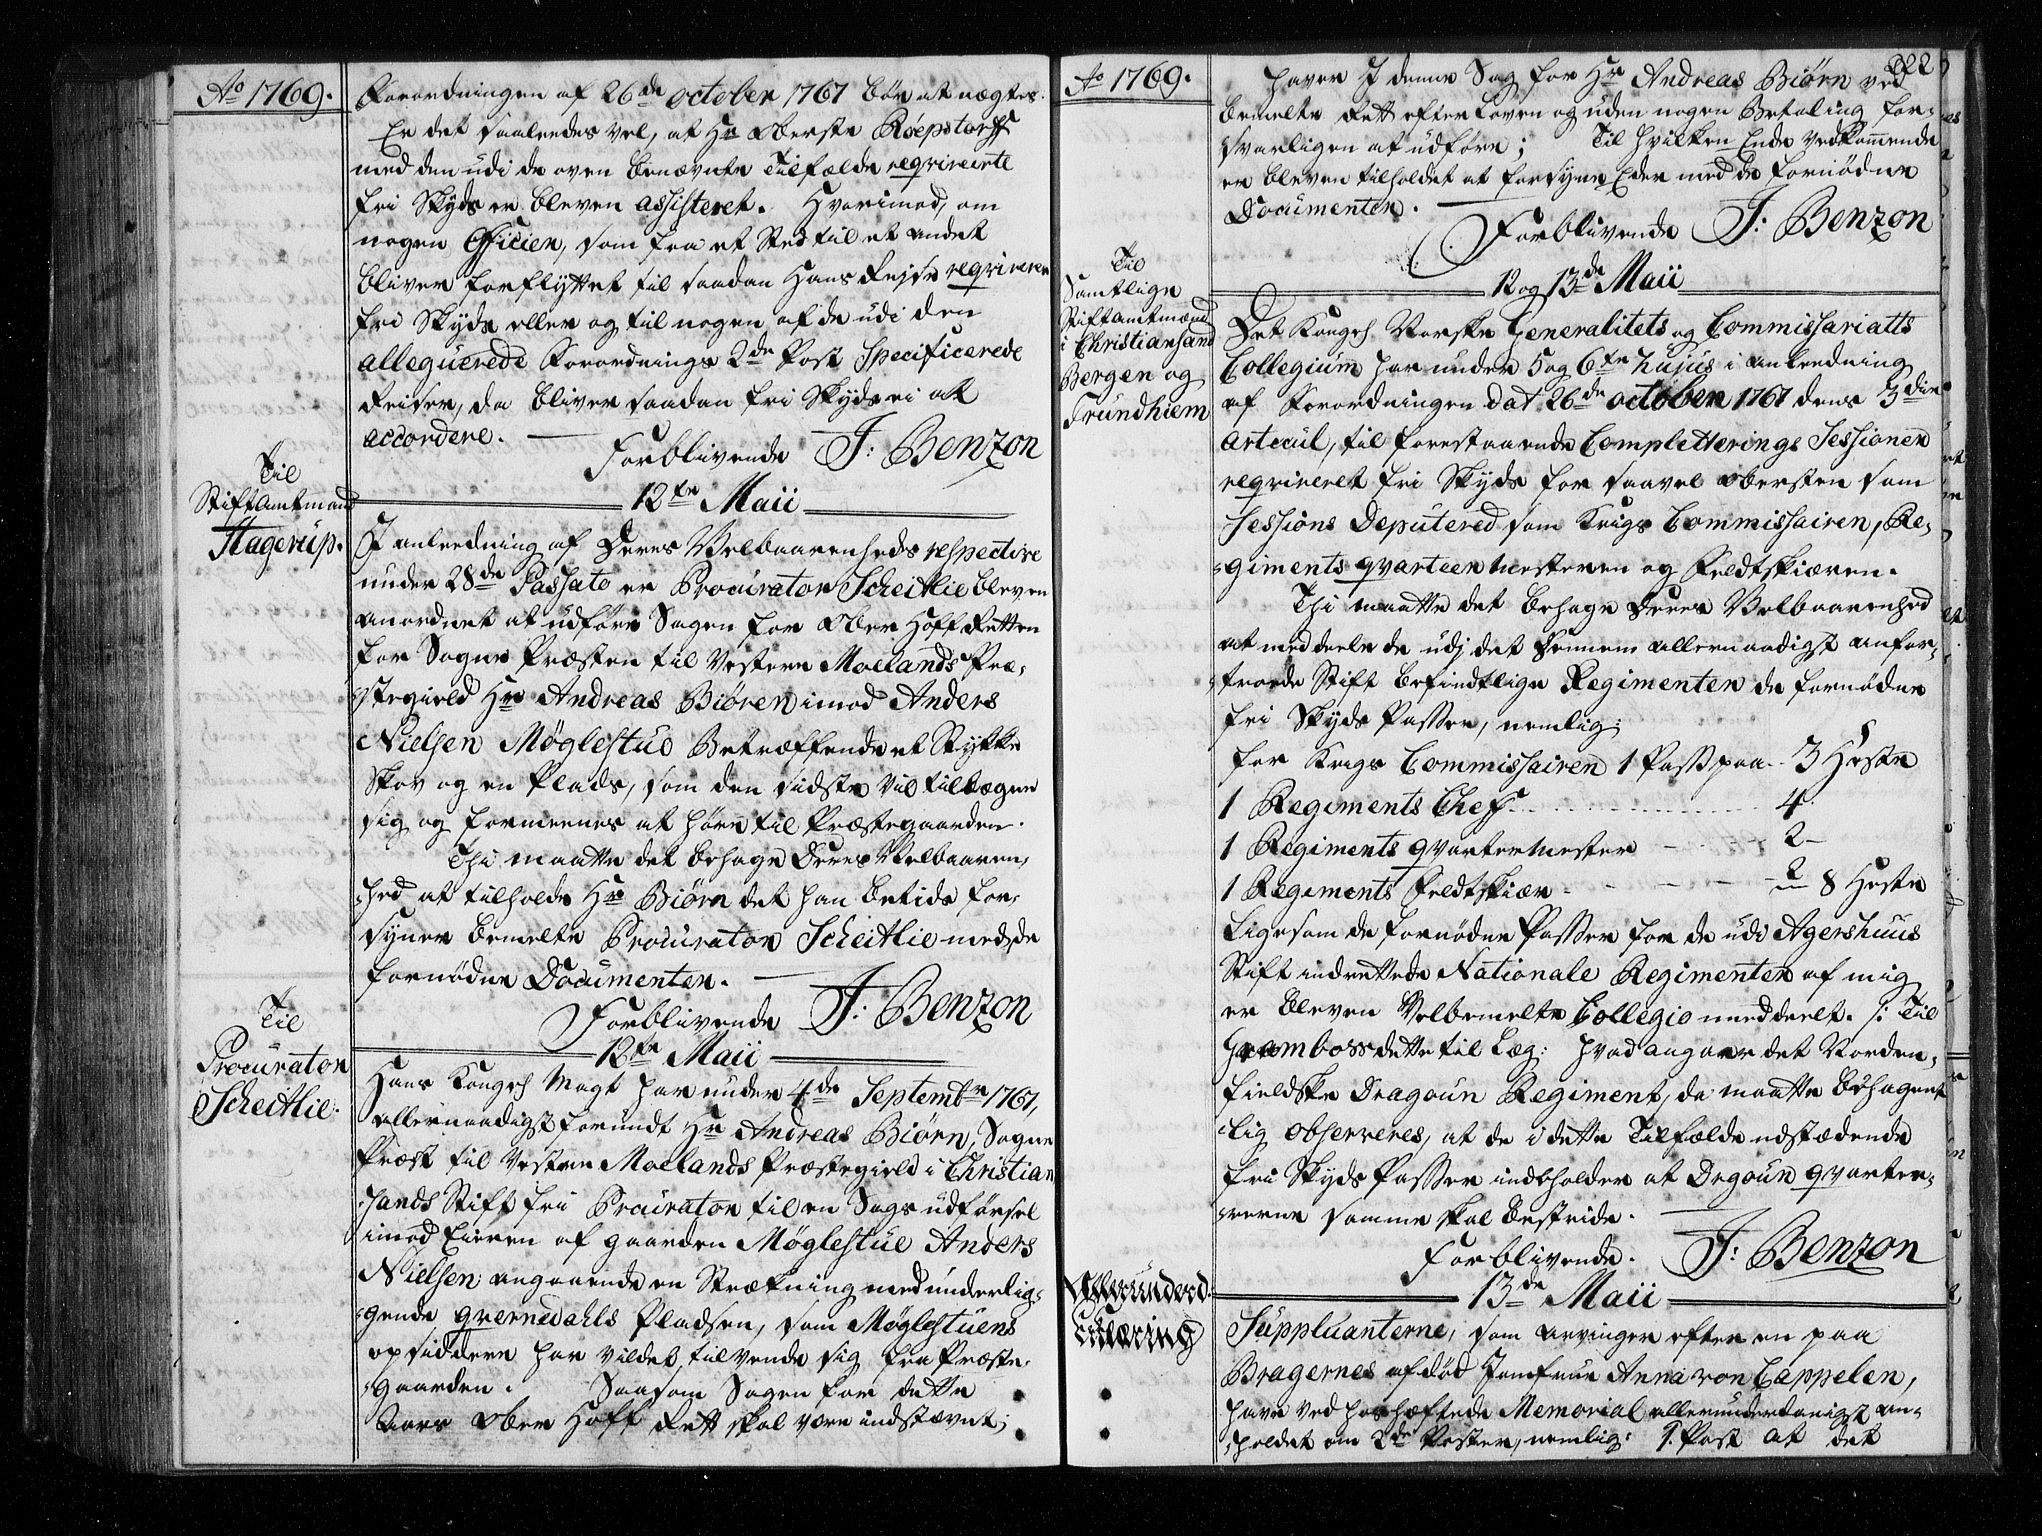 Ao 1769.
Forordningen af 26de october 1767 bør at nægtes.
Er det saaledes vel, at Hr Oberste Røepstorff
med den udi de oven benævnte Tilfælde reqvirerte
fri Skyds er bleven assisteret. Hvorimod, om
nogen Officier, som fra et Sted til et andet
bliver forflyttet til saadan Hans Rejse reqvirerer
fri Skyds eller og til nogen af de udi den
alleguerede Forordnings 2de Post Specificerede
Reiser, da bliver saadan fri Skyds ei at
accordere.
Forblivende J: Benzon
12te Maii
Til
Stiftamtmand
Hagerup.
I anledning af Deres Velbaarenheds respective
under 28de Passato er Procurator Scheitlie bleven
anordnet at udføre Sagen for Ober Hoff Retten
for Sogne Præsten til Vestere Moelands Præ-
stegield Hr Andreas Biøren imod Anders
Nielsen Møglestue Betræffende et Stykke
Skov og en Plads, som den sidste vil tilægne
sig og formeenes at høre til Præstegaarden.
Thi maatte det behage Deres Velbaaren-
hed at tilholde Hr Biørn det han betids for-
syner bemelte Procurator Scheitlie med de
fornødne Documenter.
Forblivende J: Benzon
12te Maii
Til
Procurator
Scheitlie.
Hans Kongel: Mayt har under 4de Septembr 1767,
allernaadigst forundt Hr Andreas Biørn, Sogne
Præst til Vestere Moelands Præstegield i Christian
sands Stift fri Procurator til en Sags udførsel
imod Eieren af gaarden Møglestue Anders
Nielsen angaaende en Strækning med underlig-
gende qvernedahls Pladsen, som Møglestuens
opsiddere har vildet tilvende sig fra Præste-
gaarden. Saasom Sagen for dette
Aars Ober Hoff Rett skal være indstævnt;
Ao 1769.
222
haver I denne Sag for Hr Andreas Biørn ved
bemelte Rett efter Loven og uden nogen Betaling for-
svarligen at udføre; Til hvilken Ende vedkommende
er bleven tilholdet at forsyne Eder med de fornødne
Documenter.
Forblivende J: Benzon
12 og 13de Maii
Til
Samtlige
Stiftamtmænd
i Christiansand
Bergen og
Trundhiem
Det Kongel: Norske Generalitets og Commissariatts
Collegium har under 5 og 6te hujus i anledning
af Forordningen dat 26de october 1767 dens 3die
Articul, til forestaaende Completterings Sessioner
reqvireret fri Skyds for saavel Obersten som
Sessions Deputered som Krigs Commissairen, Re-
giments qvarteermesteren og Feldtskiæren.
Thi maatte det behage Deres Velbaarenhed
at meddeele de udj det Dennem allernaadigst anfor-
troede Stift befindtlige Regimenter de fornødne
fri Skyds Passer, nemlig:
for Krigs Commissairen 1 Pass paa 3 Heste
1 Regiments Cheff 4
1 Regiments qvartermester 2
1 Regiments Feldtskiær 2 8 Heste
Ligesom de fornødne Passer for de udi Agershuus
Stift indrettede Nationale Regimenter af mig
er bleven Velbemelte Collegio meddeelt. /: Til
Grambow dette til Læg: hvad angaar det Norden-
fieldske Dragoun Regiment, da maatte behagent
lig observeres, at de i dette Tilfælde udstædende
fri Skyds Passer indeholder at Dragoun qvarter-
rerne samme skal bestride.
Forblivende. J: Benzon
13de Maii
Allerunderd:
Erklæring
Suppluanterne, som arvinger efter en paa
Bragernes afdød Jomfrue Anna von Cappelen,
have ved hoshæftede Memorial allerunderdanigst an-
holdet om 2de Poster, nemlig: 1. Post at det